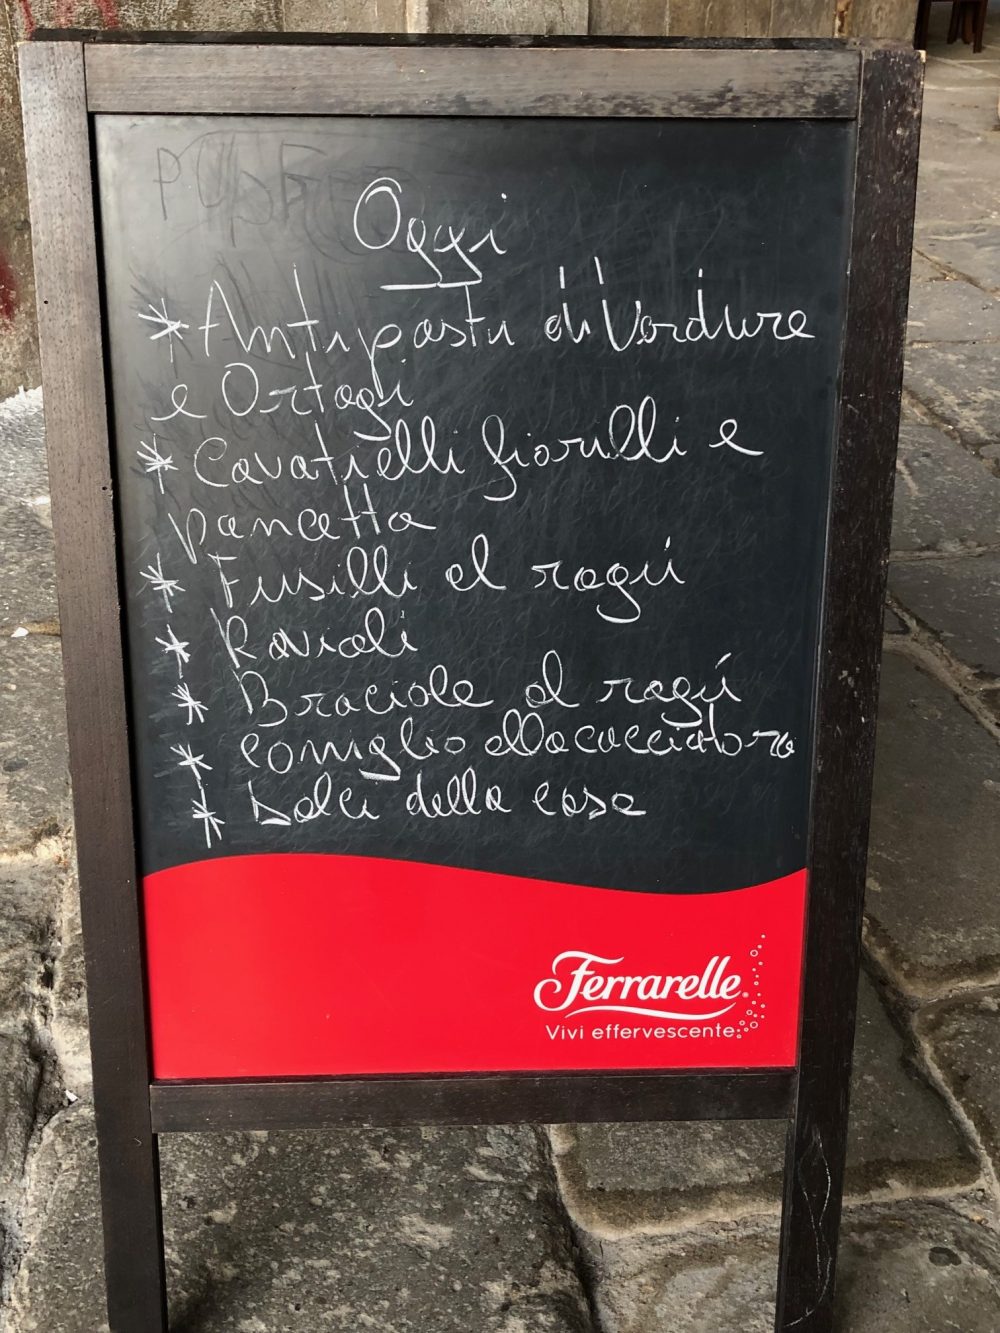 Oggi
* Antipasti di Verdure
e Ortagi
* Cavatielli fiorilli e
pancetta
* Fusilli al ragú
* Ravioli
* Braciole al ragú
* coniglio alla cacciatora
* Dolci della casa
Ferrarelle
Vivi effervescente